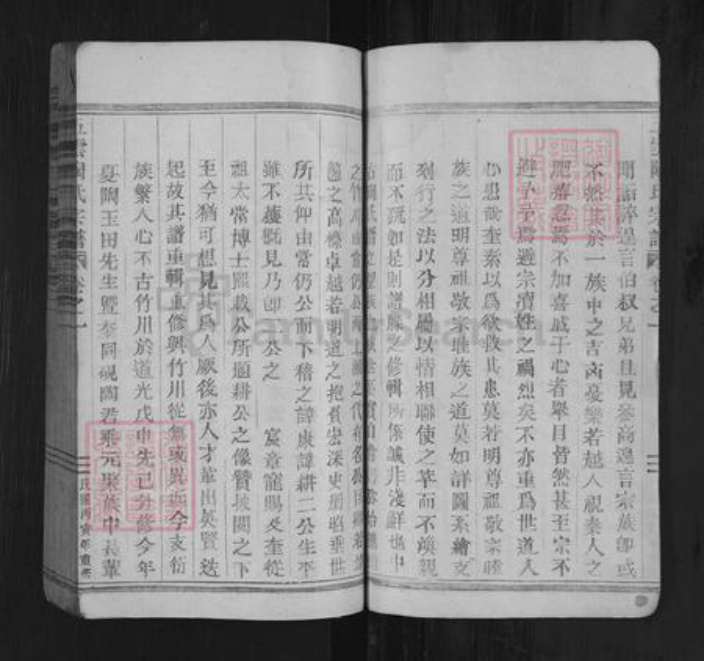 聞詬誶遑言伯叔兄弟且見參商遑言宗族卽或
不然其於一族中之吉凶憂樂若越人視秦人之
肥瘠忽焉不加喜戚于心者舉目皆然甚至宗不
避子予為避宗瀆姓之禍烈矣不亦重為世道人
心患哉奎泰以為欲救其患莫若明尊祖敬宗睦
族之道明尊祖敬宗睦族之道莫如詳圖系繪支
列行之法以分相屬以情相聯使之萃而不渙親
而不疎如是則譜牒之修輯所係誠非淺鮮也中
之高標卓越若明道之抱負宏深史册昭垂世
所共仰由常仍公而下稽之諱康諱耕二公生平
雖不獲概見乃卽 公之 宸章寵賜及奎從
祖太常博士熙載公所題耕公之像贊披閱之下
至今猶可想見其為人厥後亦人才輩出英賢迭
起故其譜重輯重修與竹川從無或異迄今支衍
族繁人心不古竹川於道光戊申先已分修今年
夏陶玉田先生曁奎同硯陶君乘元聚族中長輩
氏宗譜 卷之一
民國丙寅年重修